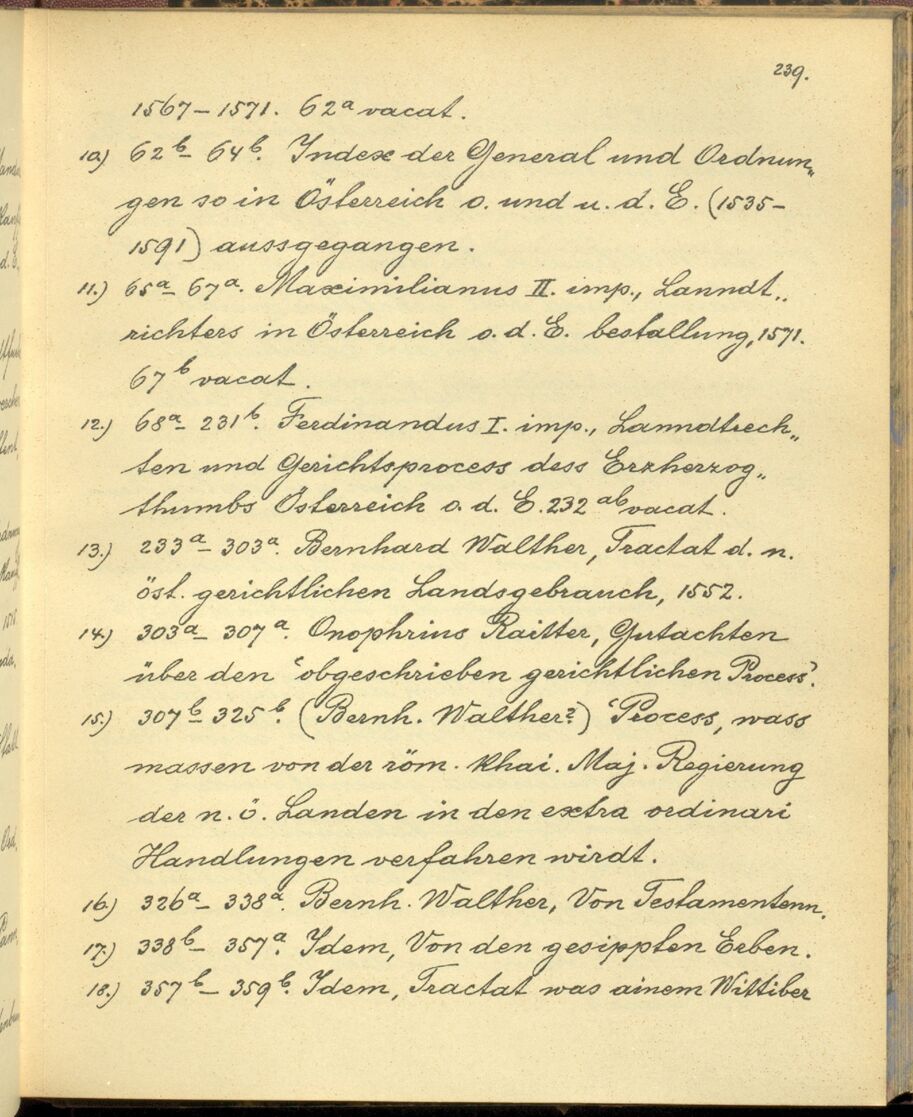 239.
1567–1571. 62ᵃ vacat.
10.) 62ᵇ– 64ᵇ. Index der General und Ordnun„
gen so in Österreich o. und u. d. E. (1535–
1591) aussgegangen.
11.) 65ᵃ– 67ᵃ. Maximilianus II. imp., Lanndt„
richters in Österreich o. d. E. bestallung, 1571.
67ᵇ vacat.
12.) 68ᵃ– 231ᵇ. Ferdinandus I. imp., Lanndtrech„
ten und Gerichtsprocess dess Erzherzog„
thumbs Österreich o. d. E. 232ᵃᵇ vacat.
13.) 233ᵃ– 303ᵃ. Bernhard Walther, Tractat d. n.
öst. gerichtlichen Landsgebrauch, 1552.
14.) 303ᵃ– 307ᵃ. Onophrius Raitter, Gutachten
über den ‘obgeschrieben gerichtlichen Process’.
15.) 307ᵇ– 325ᵇ. (Bernh. Walther?) ‘Process, wass
massen von der röm. khai. Maj. Regierung
der n. ö. Landen in den extra ordinari
Handlungen verfahren wirdt.
16.) 326ᵃ– 338ᵃ. Bernh. Walther, Von Testamentenn.
17.) 338ᵇ– 357ᵃ. Idem, Von den gesippten Erben.
18.) 357ᵇ– 359ᵇ. Idem, Tractat was ainem Wittiber